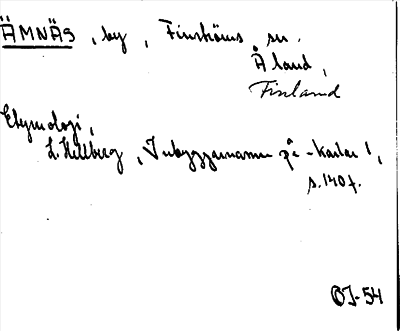 ÄMNÄS, by, Finströms sn.
Åland,
Finland
Etymologi,
L. Hellberg, Inbyggarnamn på -karlar 1,
s. 140 f.
OJ-54